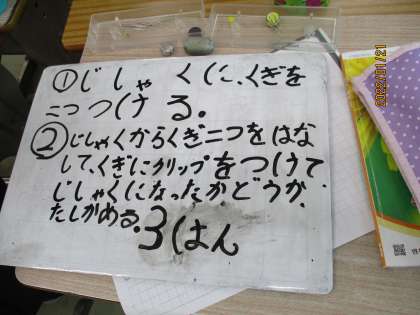 ①じしゃくに、くぎを
二つつける。
②じしゃくからくぎ二つをはな
して、くぎにクリップをつけて
じしゃくになったか、どうか、
たしかめる。
3はん
2022/01/21